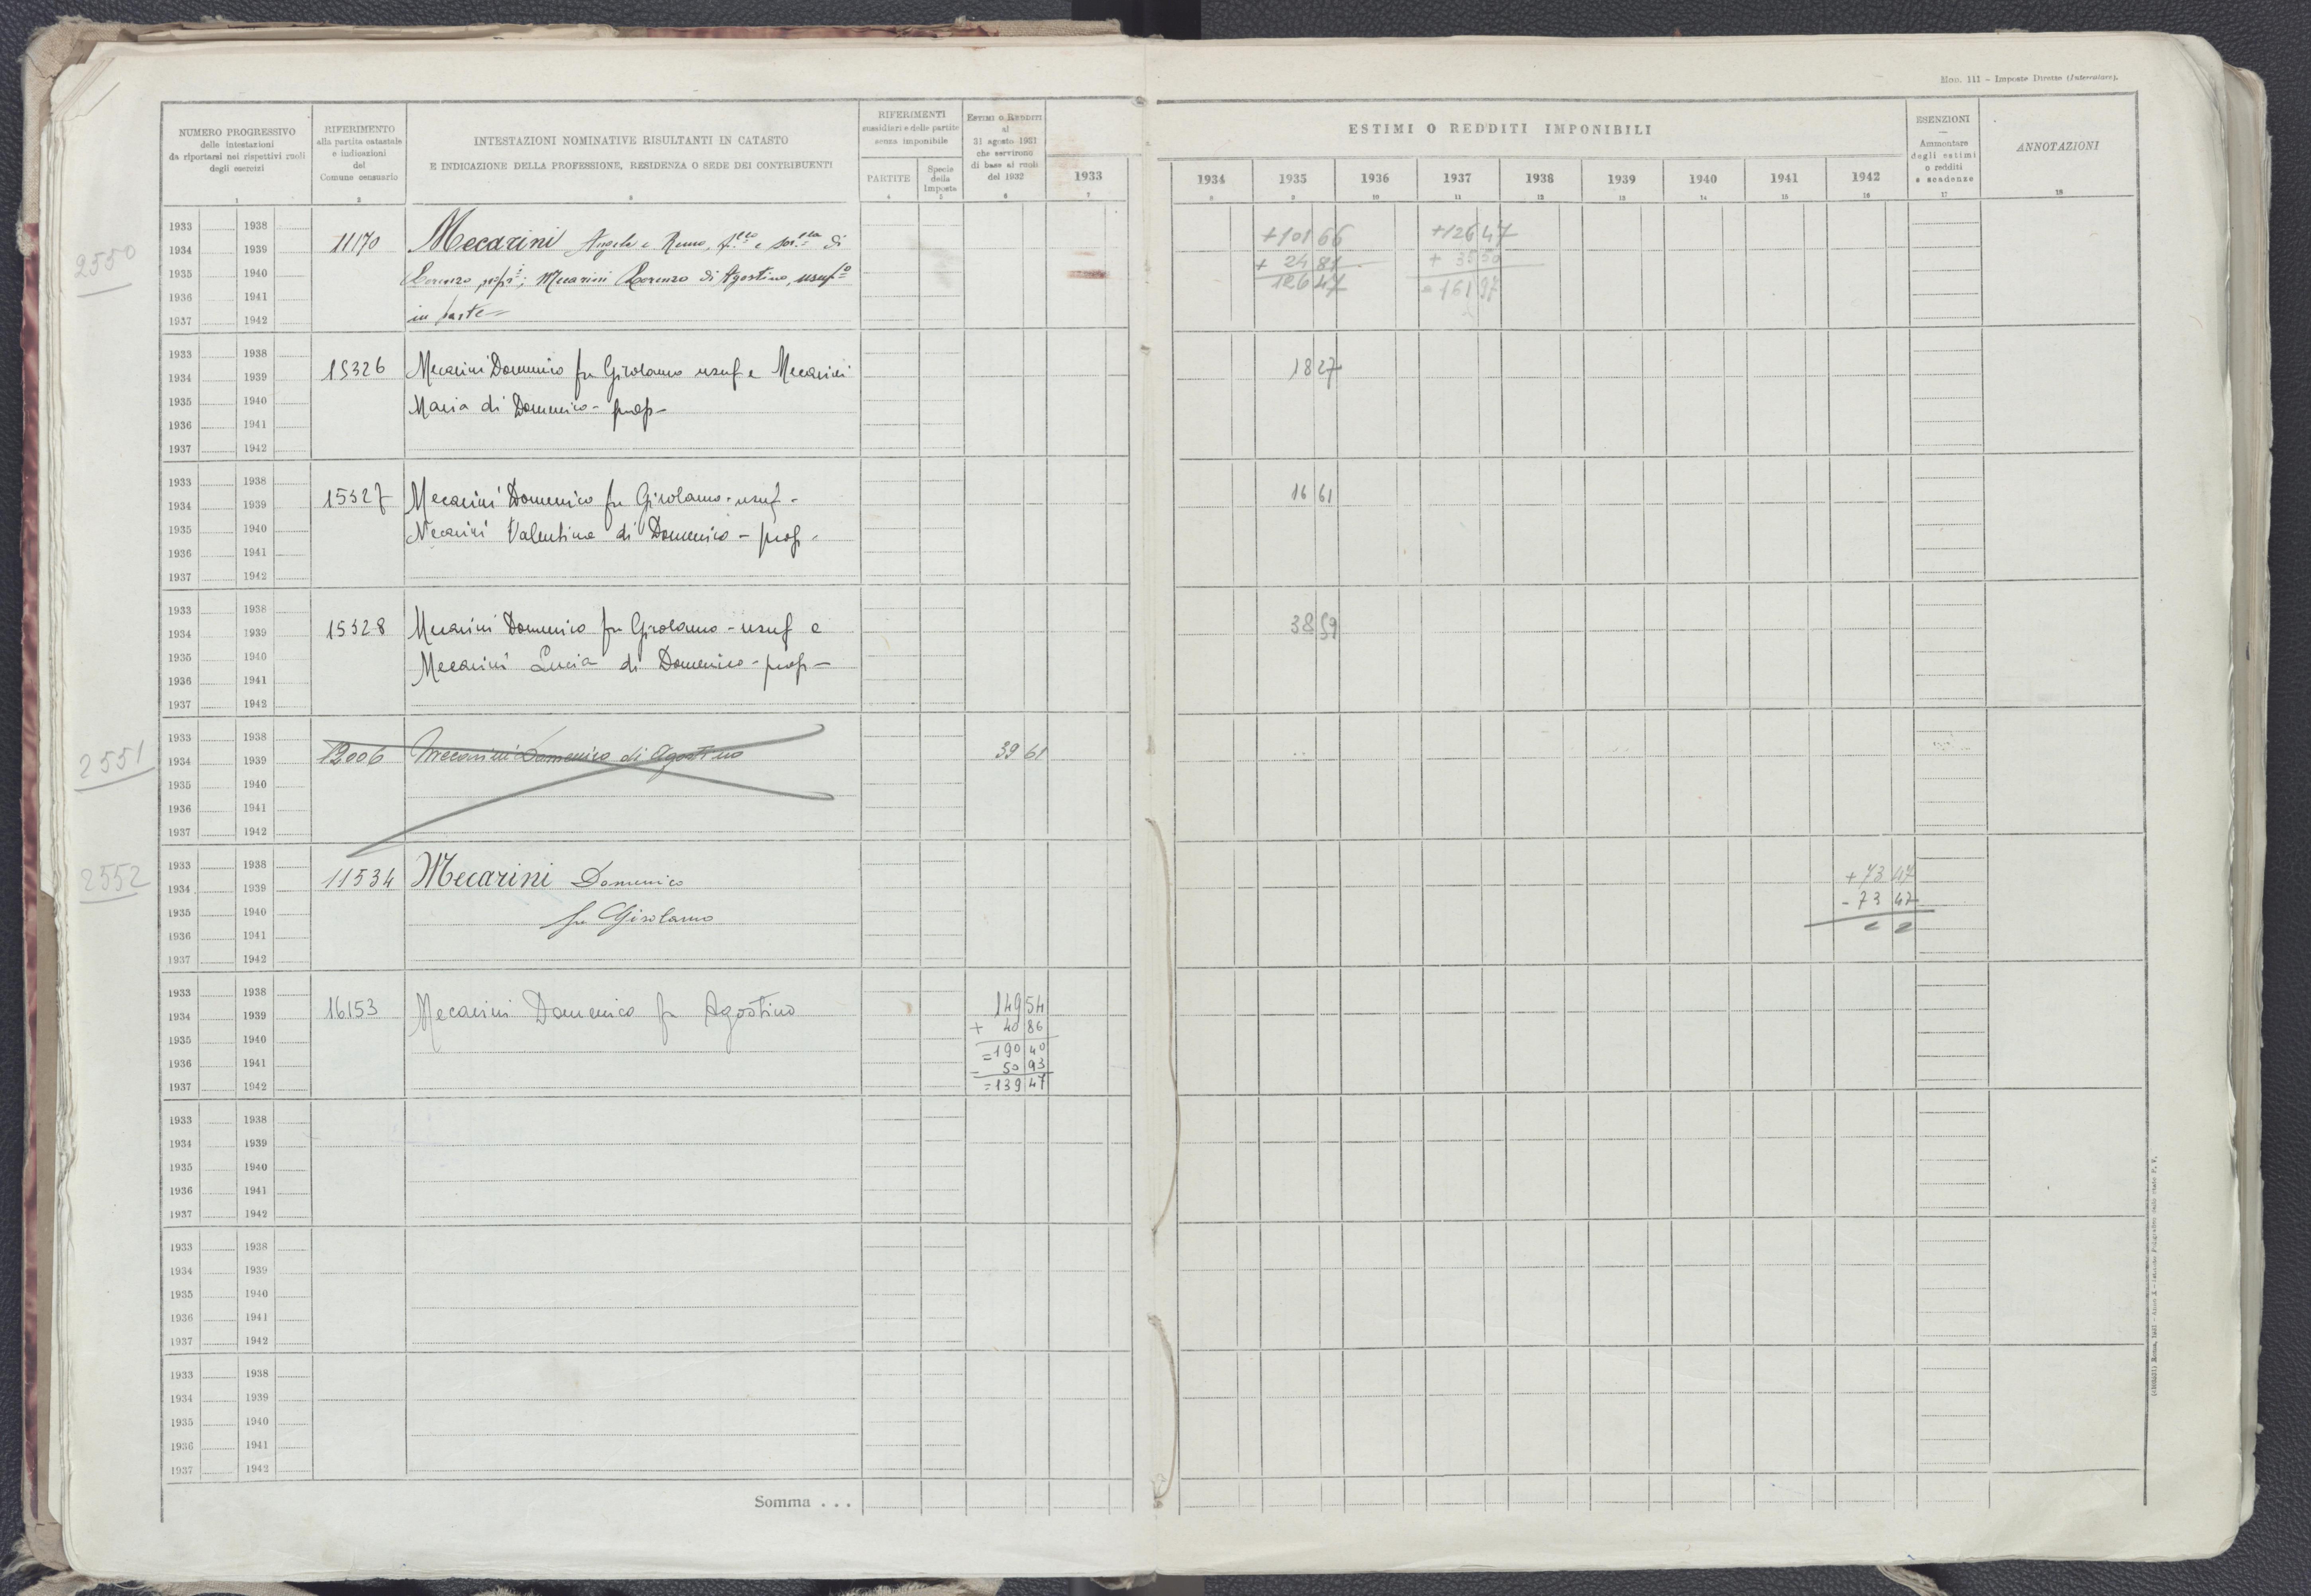 Mod. 111 – Imposte Dirette (Intercalare).
NUMERO PROGRESSIVO
delle intestazioni
da riportarsi nei rispettivi ruoli
degli esercizi
1
RIFERIMENTO
alla partita catastale
e indicazioni
del
Comune censuario
2
INTESTAZIONI NOMINATIVE RISULTANTI IN CATASTO
E INDICAZIONE DELLA PROFESSIONE, RESIDENZA O SEDE DEI CONTRIBUENTI
3
RIFERIMENTI
sussidiari e delle partite
senza imponibile
PARTITE
4
Specie
della
imposta
5
ESTIMI O REDDITI
al
31 agosto 1931
che servirono
di base ai ruoli
del 1932
6
1933
7
ESTIMI O REDDITI IMPONIBILI
1934 1935 1936 1937 1938 1939 1940 1941 1942
8 9 10 11 12 13 14 15 16
ESENZIONI
—
Ammontare
degli estimi
o redditi
e scadenze
17
ANNOTAZIONI
18
2550
1933 1938
1934 1939 11170 Mecarini Angelo e Remo, f.llo e sor.lla di +101 66 +126 47
1935 1940 Lorenzo propri; Mecarini Lorenzo di Agostino, usuf.o + 24 81 + 35 50
1936 1941 126 47 = 161 97
1937 1942 in parte
1933 1938
1934 1939 15326 Mecarini Domenico fu Girolamo usuf e Mecarini 18 27
1935 1940 Maria di Domenico - prop -
1936 1941
1937 1942
1933 1938
1934 1939 15327 Mecarini Domenico fu Girolamo - usuf - 16 61
1935 1940 Mecarini Valentina di Domenico - prop -
1936 1941
1937 1942
1933 1938
1934 1939 15328 Mecarini Domenico fu Girolamo - usuf e 38 59
1935 1940 Mecarini Lucia di Domenico - prop -
1936 1941
1937 1942
2551
1933 1938
1934 1939 12006 Mecarini Domenico di Agostino 39 61
1935 1940
1936 1941
1937 1942
2552
1933 1938 + 73 47
1934 1939 11534 Mecarini Domenico - 73 47
1935 1940 fu Girolamo
1936 1941
1937 1942
1933 1938
1934 1939 16153 Mecarini Domenico fu Agostino 149 54
1935 1940 + 40 86
1936 1941 = 190 40
- 50 93
1937 1942 = 139 47
1933 1938
1934 1939
1935 1940
1936 1941
1937 1942
1933 1938
1934 1939
1935 1940
1936 1941
1937 1942
1933 1938
1934 1939
1935 1940
1936 1941
1937 1942
Somma . . .